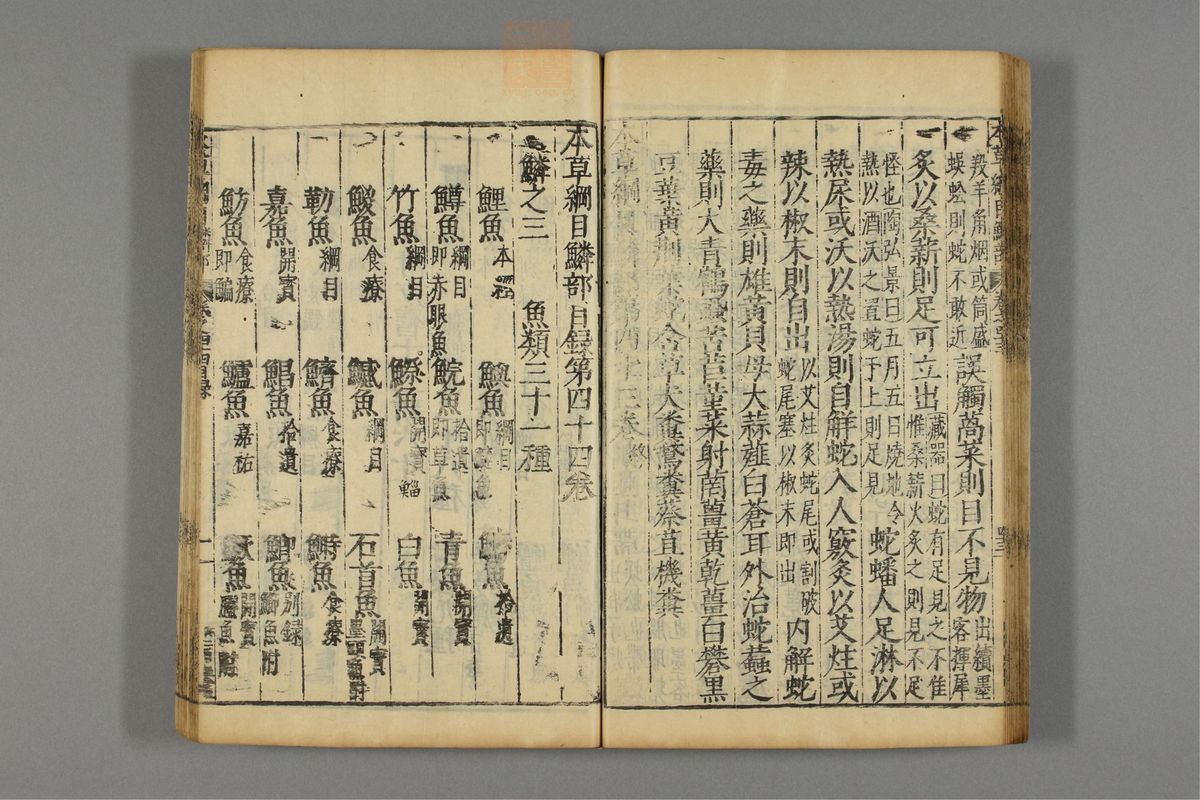 羖羊角烟或筒盛
蜈蚣則蛇不敢近
誤觸萵菜則目不見物
出續墨
客揮犀
炙以桑薪則足可立出
藏器曰蛇有足見之不佳
惟桑薪火炙之則見不足
怪也陶弘景曰五月五日燒地令
熱以酒沃之置蛇于上則足見
蛇蟠人足淋以
熱尿或沃以熱湯則自解蛇入人竅灸以艾炷或
辣以椒末則自出
以艾炷灸蛇尾或割破
蛇尾塞以椒末即出
内解蛇
毒之藥則雄黃貝母大蒜薤白蒼耳外治蛇蠚之
藥則大青鶴蝨苦苣堇菜射罔薑黃乾薑白礬黑
豆葉黃荆葉蛇含草犬糞鵞糞蔡苴機糞
本草綱目鱗部目錄第四十四卷
鱗之三 魚類三十一種
鯉魚 本經 鱮魚 綱目 鱅魚 拾遺
鱒魚 綱目 即赤眼魚 鯇魚 拾遺 即草魚 青魚 開寶
竹魚 綱目 鯔魚 開寶 白魚 開寶
鯼魚 食療 鱤魚 綱目 石首魚 開寶 墨頭魚附
勒魚 綱目 鱭魚 食療 鰣魚 食療
嘉魚 開寶 鯧魚 拾遺 鯽魚 別錄 鯽魚附
魴魚 食療 即鯿 鱸魚 嘉祐 鱖魚 開寶 鰧魚附